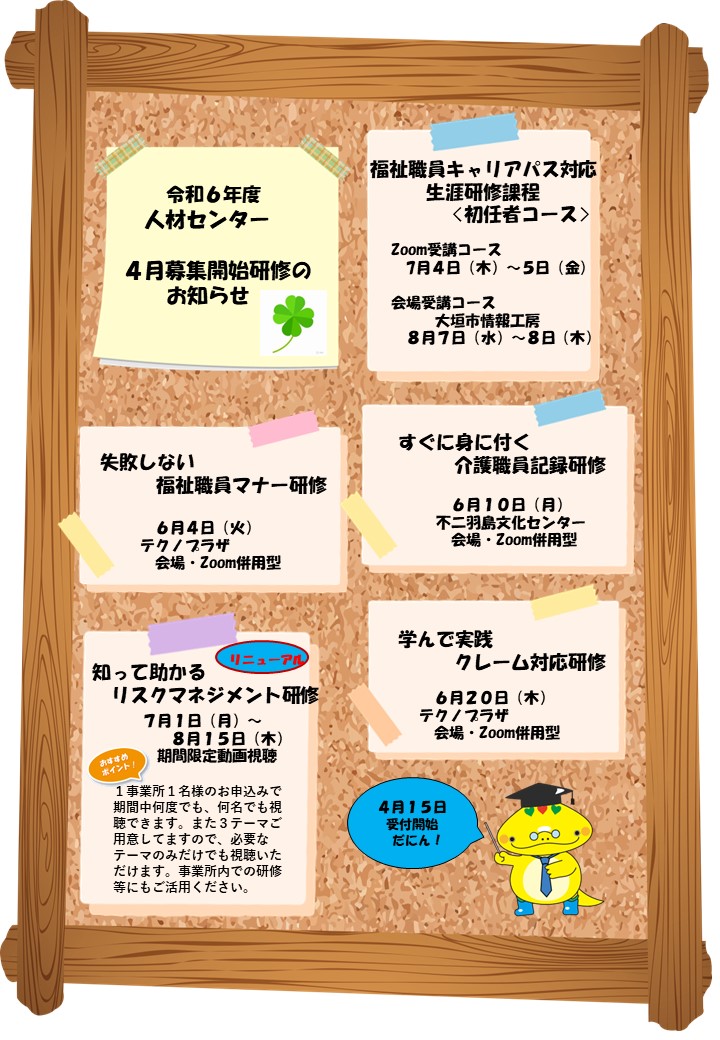 令和６年度
人材センター
４月募集開始研修の
お知らせ
福祉職員キャリアパス対応
生涯研修課程
＜初任者コース＞
Zoom受講コース
７月４日（木）～５日（金）
会場受講コース
大垣市情報工房
８月７日（水）～８日（木）
失敗しない
福祉職員マナー研修
６月４日（火）
テクノプラザ
会場・Zoom併用型
すぐに身に付く
介護職員記録研修
６月１０日（月）
不二羽島文化センター
会場・Zoom併用型
リニューアル
知って助かる
リスクマネジメント研修
７月１日（月）～
８月１５日（木）
期間限定動画視聴
おすすめ
ポイント！
１事業所１名様のお申込みで
期間中何度でも、何名でも視
聴できます。また３テーマご
用意してますので、必要な
テーマのみだけでも視聴いた
だけます。事業所内での研修
等にもご活用ください。
学んで実践
クレーム対応研修
６月２０日（木）
テクノプラザ
会場・Zoom併用型
４月１５日
受付開始
だにん！